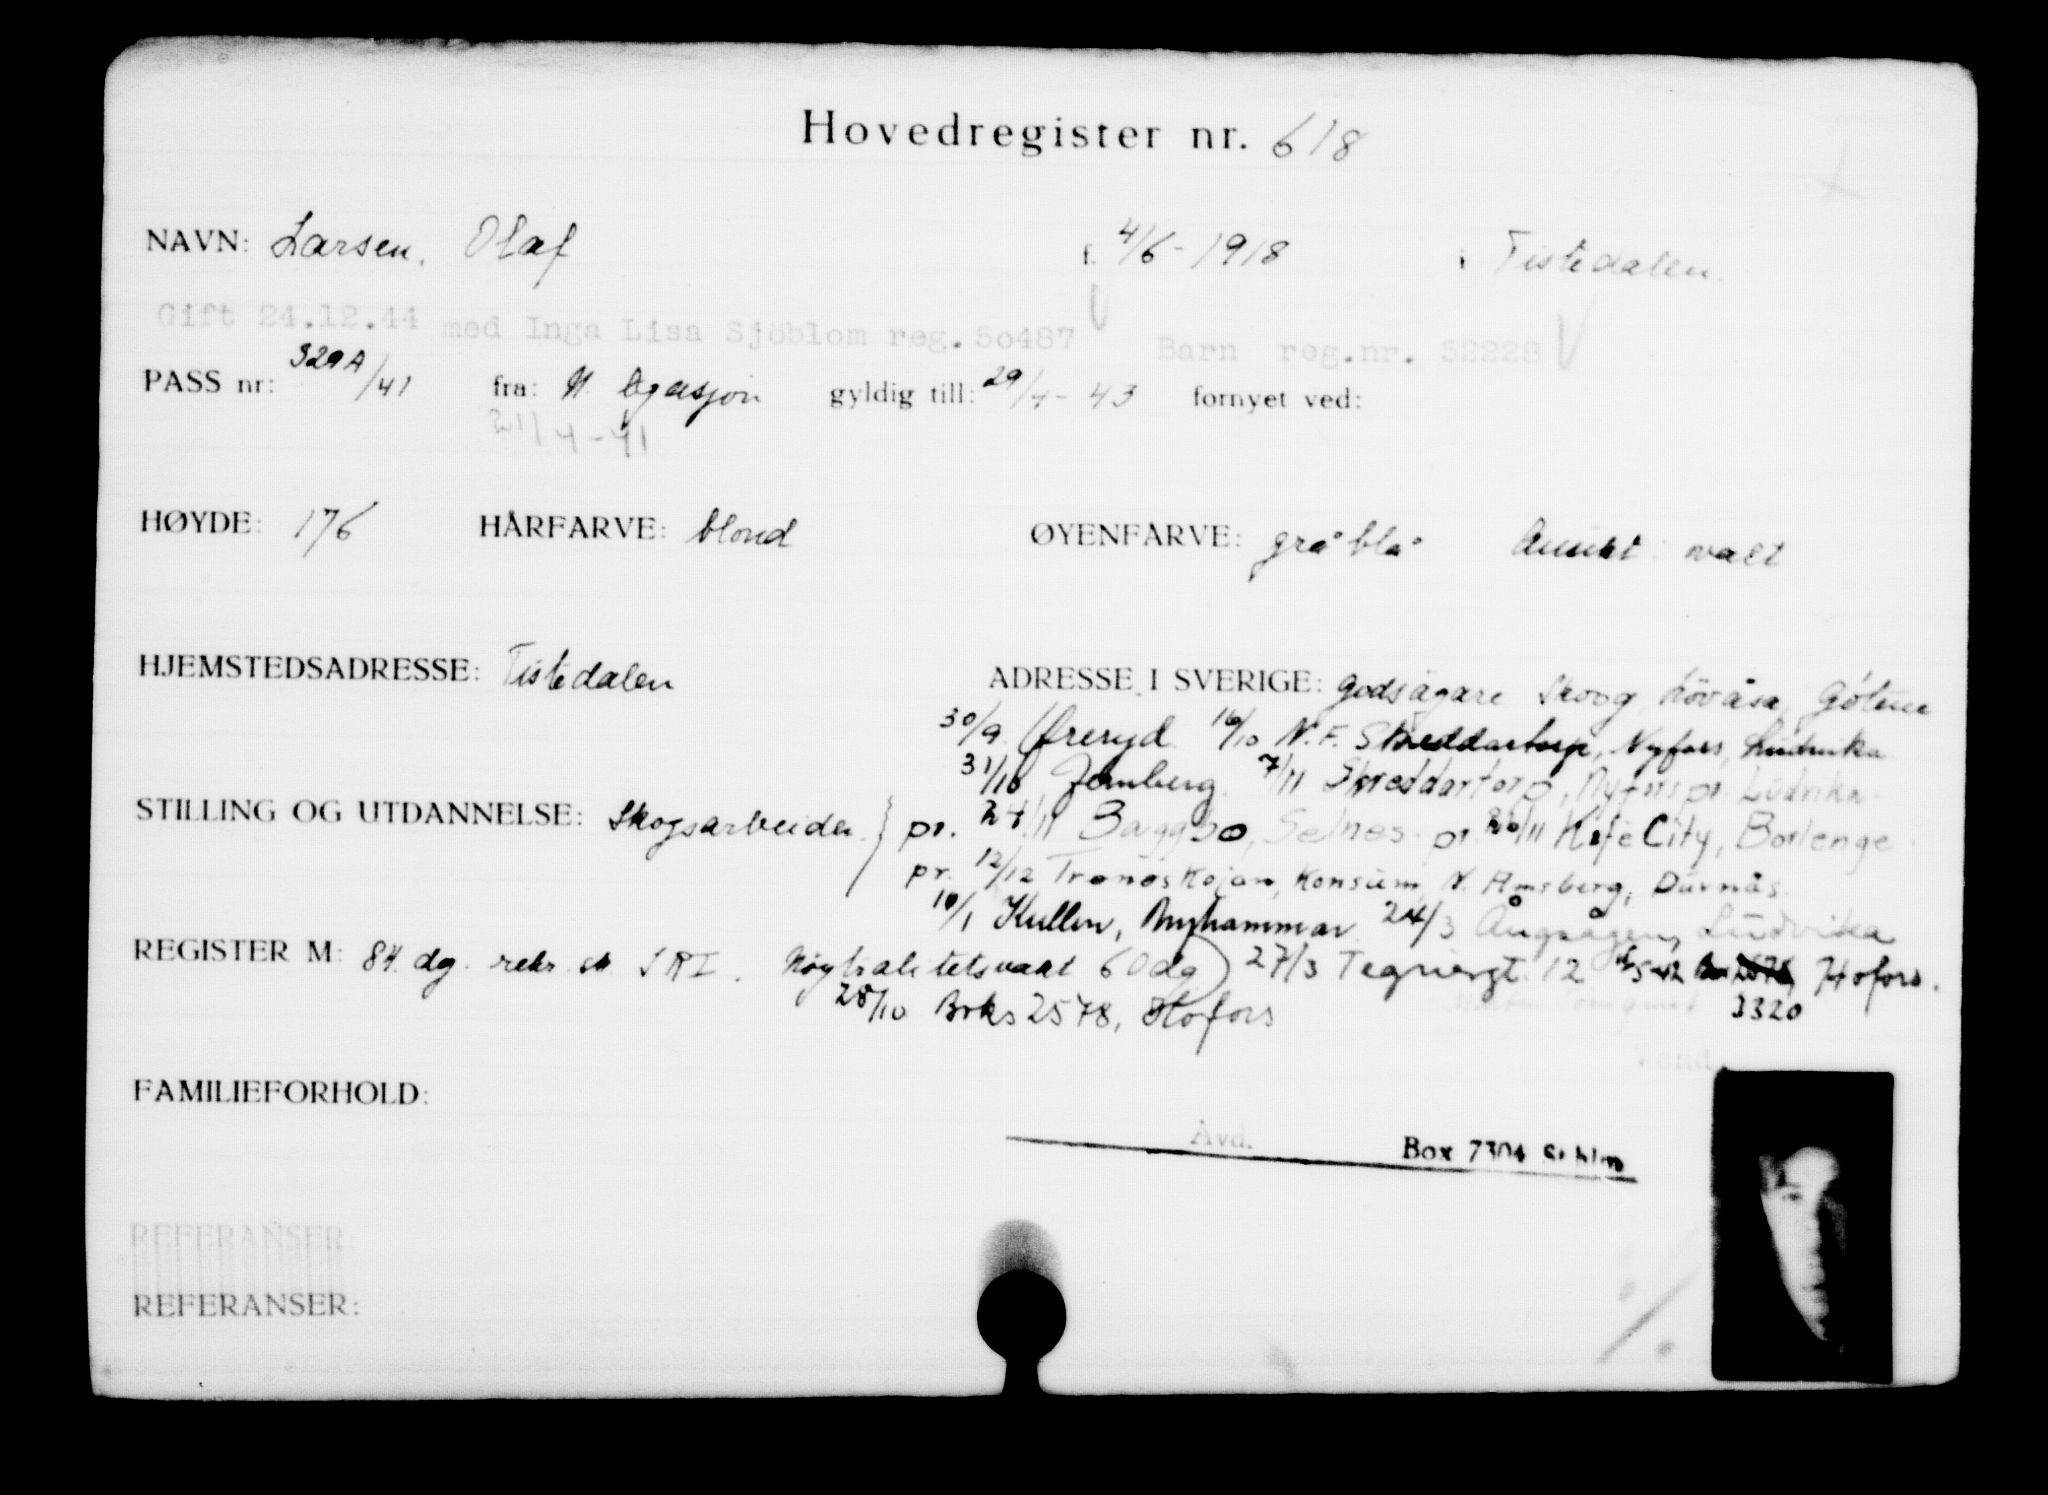 Hovedregister nr. 618
NAVN: Larsen, Olaf f. 4/6-1918 i Tistedalen.
Gift 24.12.44 med Inga Lisa Sjöblom reg.50487 Barn reg.nr. 52228
PASS nr: 329A/41 fra: N. legasjon gyldig till: 29/4-43 fornyet ved:
21/4-41
HØYDE: 176 HÅRFARVE: blond ØYENFARVE: gråblå Ansikt: ovalt
HJEMSTEDSADRESSE: Tistedalen ADRESSE I SVERIGE: Godsägare Skoog, Lövåsa, Götene
30/9 Øreryd. 16/10 N.F. Skreddartorp, Nyfors, Ludvika
31/10 Jernberg. 7/11 Skreddartorp, Nyfors pr. Ludvika.
STILLING OG UTDANNELSE: Skogsarbeider. pr. 24/11 Baggbo, Selnes. pr. 26/11 Kafe City, Borlenge.
pr. 12/12 Tronoskojan, Konsum, N. Amsberg, Durnås.
10/1 Kullen, Nyhammar. 24/3 Ångsågen, Ludvika
REGISTER M: 84 dg. rekr. sk. I R I. Nøytralitetsvakt 60 dg 27/3 Tegnergt. 12 Hofors.
28/10 Boks 2578, Hofors 3320
Vend
FAMILIEFORHOLD:
Avd. Box 7304 Sthlm
REFERANSER
REFERANSER:
%